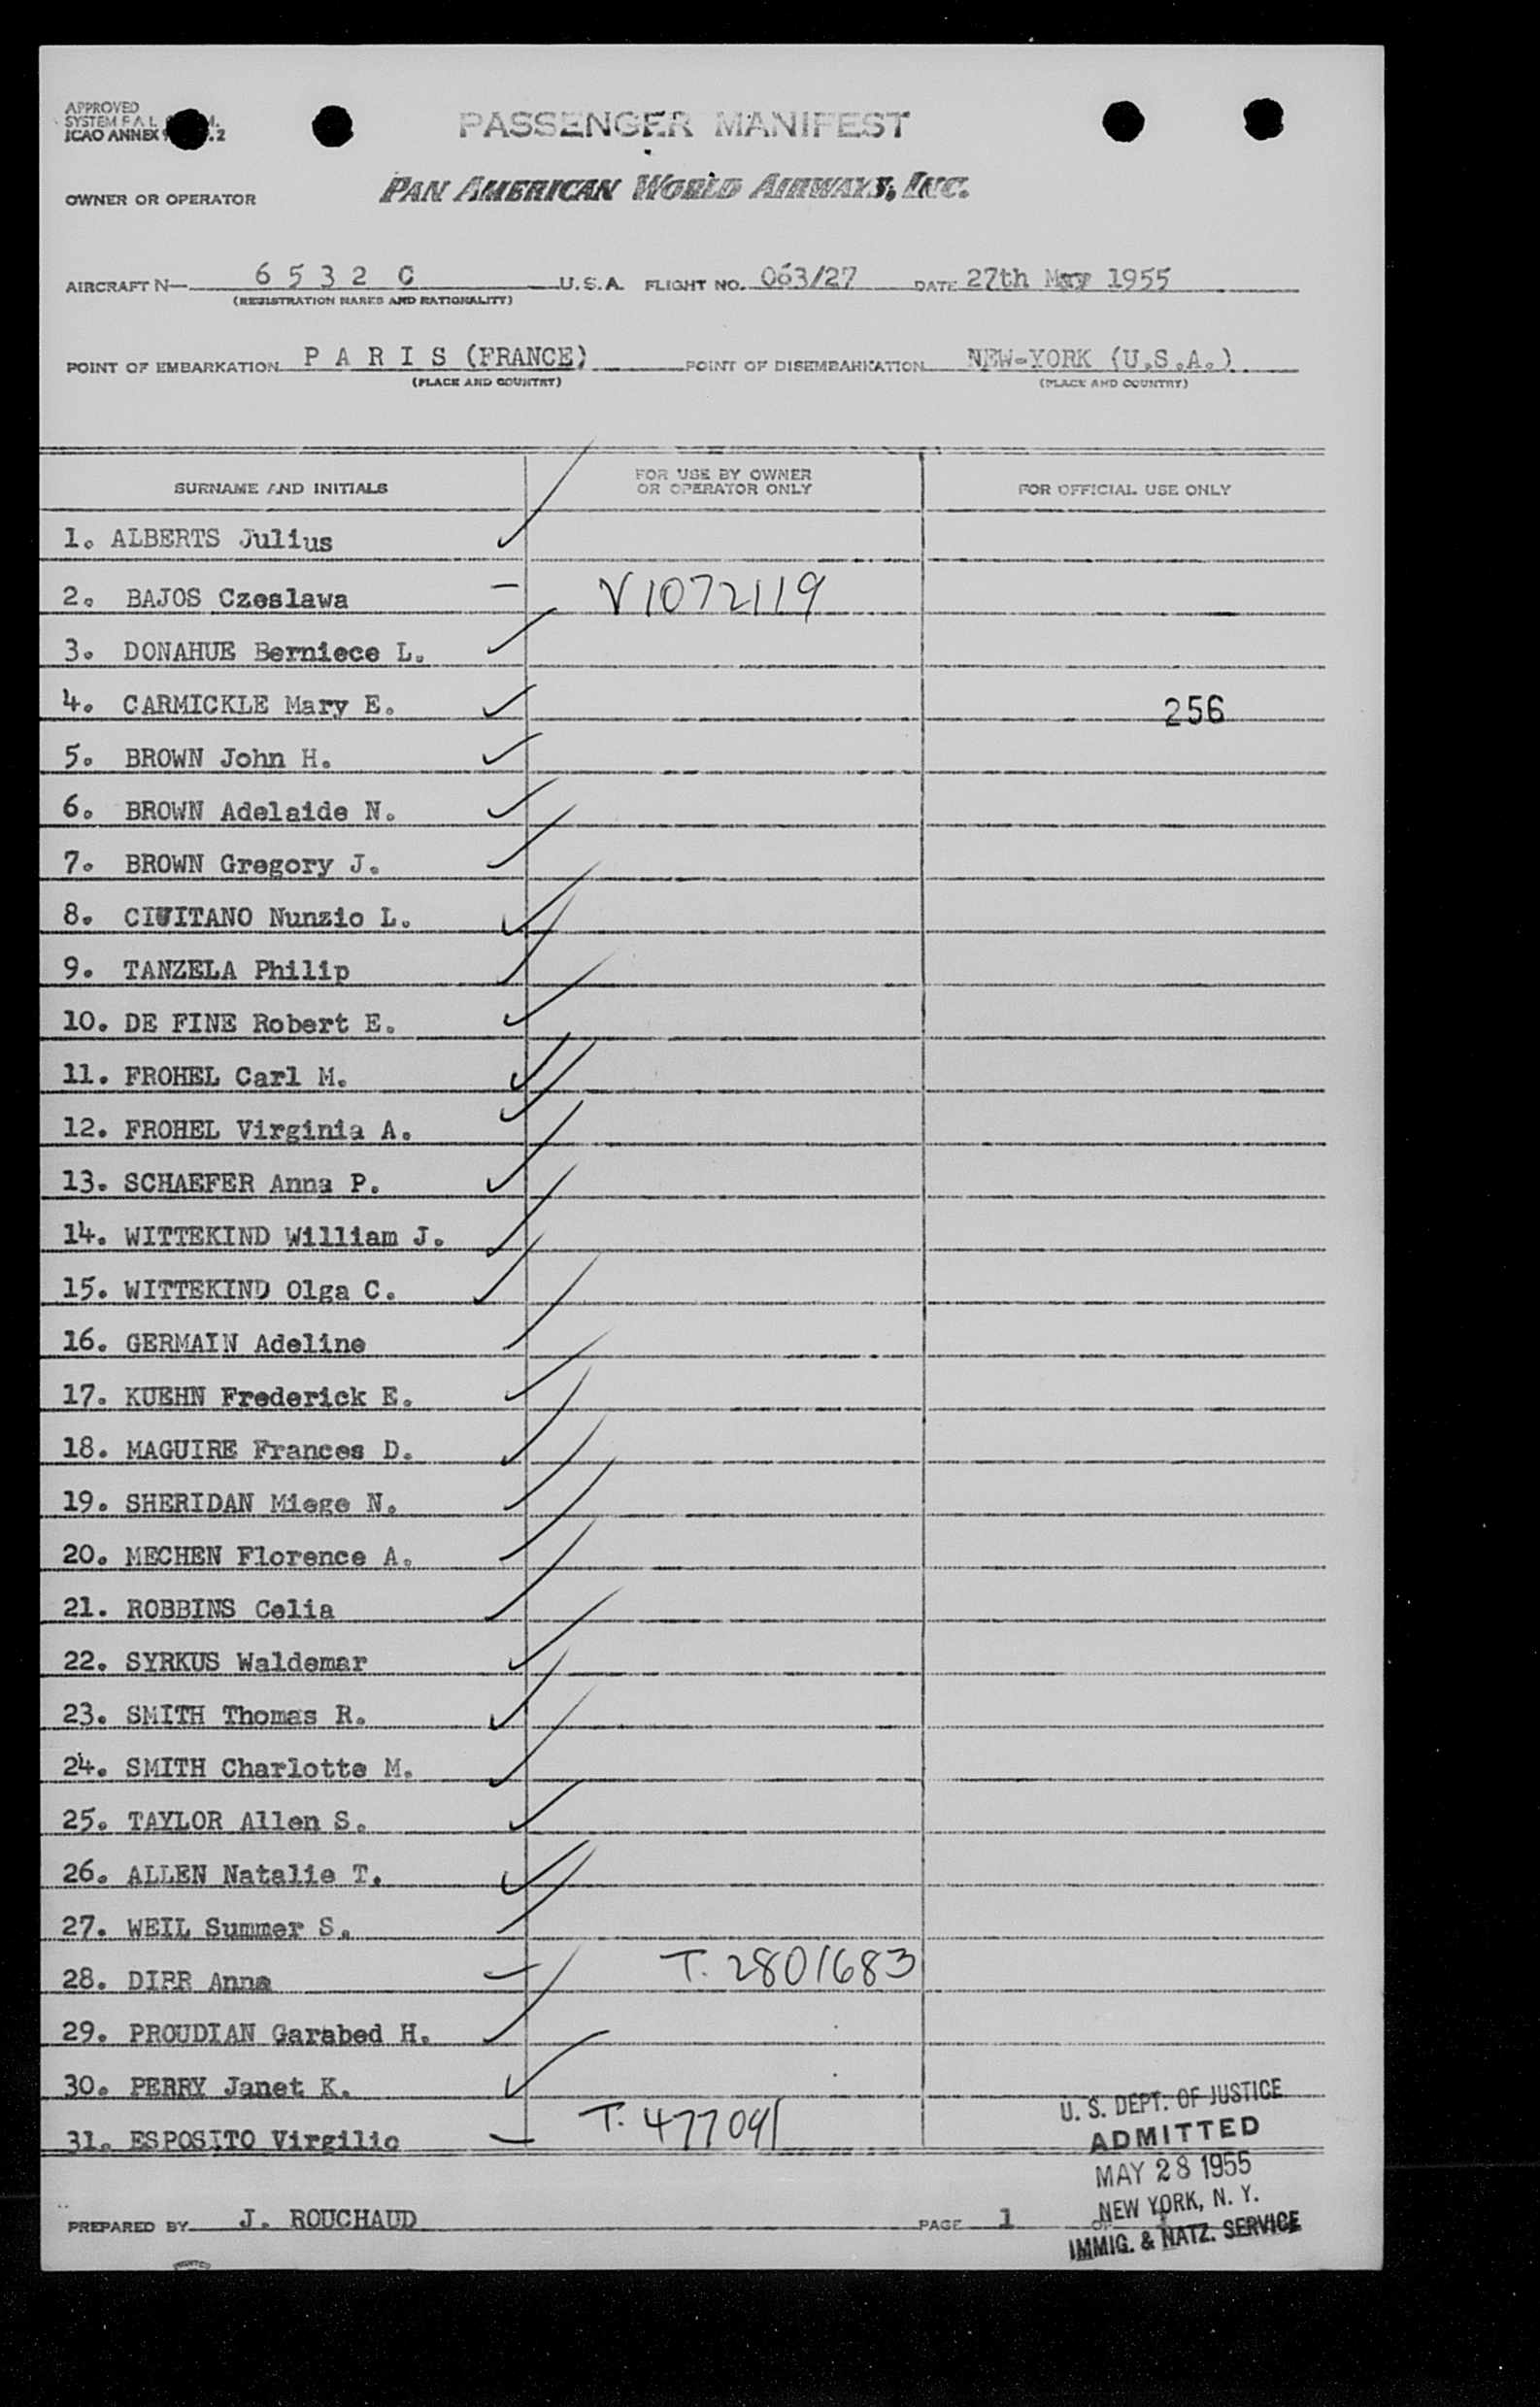 APPROVED
SYSTEM F A L
ICAO ANNEX 9 .2
PASSENGER MANIFEST
OWNER OR OPERATOR PAN AMERICAN WORLD AIRWAYS, INC.
AIRCRAFT N— 6 5 3 2 C U.S.A. FLIGHT NO. 063/27 DATE 27th May 1955
(REGISTRATION MARKS AND NATIONALITY)
POINT OF EMBARKATION P A R I S (FRANCE) POINT OF DISEMBARKATION NEW-YORK (U.S.A.)
(PLACE AND COUNTRY) (PLACE AND COUNTRY)
SURNAME AND INITIALS FOR USE BY OWNER OR OPERATOR ONLY FOR OFFICIAL USE ONLY
1. ALBERTS Julius
2. BAJOS Czeslawa V1072119
3. DONAHUE Berniece L.
4. CARMICKLE Mary E. 256
5. BROWN John H.
6. BROWN Adelaide N.
7. BROWN Gregory J.
8. CIVITANO Nunzio L.
9. TANZELA Philip
10. DE FINE Robert E.
11. FROHEL Carl M.
12. FROHEL Virginia A.
13. SCHAEFER Anna P.
14. WITTEKIND William J.
15. WITTEKIND Olga C.
16. GERMAIN Adeline
17. KUEHN Frederick E.
18. MAGUIRE Frances D.
19. SHERIDAN Miege N.
20. MECHEN Florence A.
21. ROBBINS Celia
22. SYRKUS Waldemar
23. SMITH Thomas R.
24. SMITH Charlotte M.
25. TAYLOR Allen S.
26. ALLEN Natalie T.
27. WEIL Summer S.
28. DIRR Anna T. 2801683
29. PROUDIAN Garabed H.
30. PERRY Janet K.
31. ESPOSITO Virgilio T. 477091
U. S. DEPT. OF JUSTICE
ADMITTED
MAY 28 1955
NEW YORK, N. Y.
IMMIG. & NATZ. SERVICE
PREPARED BY J. ROUCHAUD PAGE 1 OF